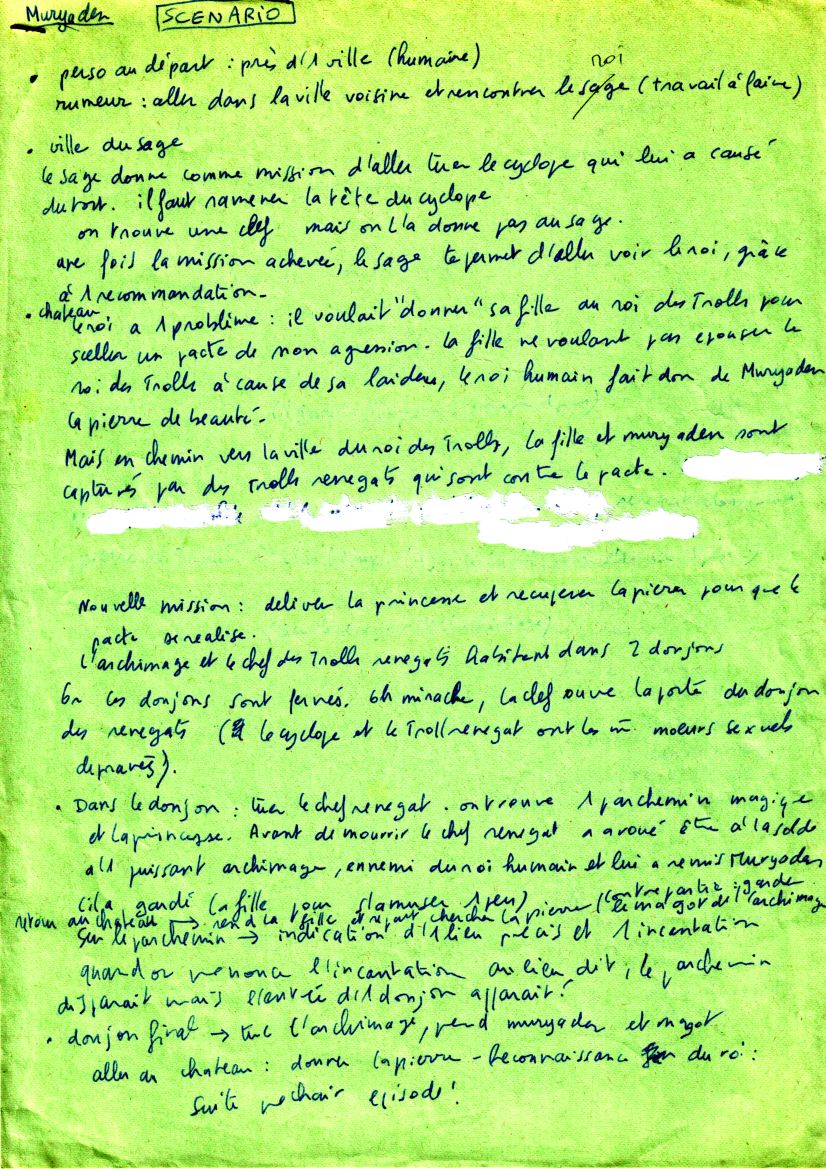 Muryaden SCENARIO
• perso au départ : près d'1 ville (humaine)
roi
rumeur : aller dans la ville voisine et rencontrer le sage (travail à faire)
• ville du sage
le sage donne comme mission d'aller tuer le cyclope qui lui a causé
du tort. il faut ramener la tête du cyclope
on trouve une clef mais on l'a donne pas au sage.
une fois la mission achevée, le sage te permet d'aller voir le roi, grâce
à 1 recommandation.
• chateau
le roi a 1 problème : il voulait "donner" sa fille au roi des Trolls pour
sceller un pacte de non agression. la fille ne voulant pas epouser le
roi des Trolls à cause de sa laideur, le roi humain fait don de Muryaden
la pierre de beauté.
Mais en chemin vers la ville du roi des Trolls, la fille et muryaden sont
capturés par des Trolls renegats qui sont contre le pacte.
Nouvelle mission : delivrer la princesse et recuperer la pierre pour que le
pacte se realise.
L'archimage et le chef des Trolls renegats habitent dans 2 donjons
les donjons sont fermés. oh miracle, la clef ouvre la porte du donjon
des renegats ( le cyclope et le Troll renegat ont les m moeurs sexuels
depravés).
• Dans le donjon : tuer le chef renegat. on trouve 1 parchemin magique
et la princesse. Avant de mourrir le chef renegat a avoué être à la solde
d'1 puissant archimage, ennemi du roi humain et lui a remis Muryaden
(il a gardé la fille pour s'amuser 1 peu) (contre partie : garde
retour au chateau → rend la fille et repart chercher la pierre le magot de l'archimage
Sur le parchemin → indication d'1 lieu précis et 1 incantation
quand on prenonce l'incantation au lieu dit, le parchemin
disparait mais l'entrée d'1 donjon apparait !
• donjon final → tue l'archimage, prend muryaden et magot
aller au chateau : donner la pierre - Reconnaissance du roi :
Suite prochain episode !